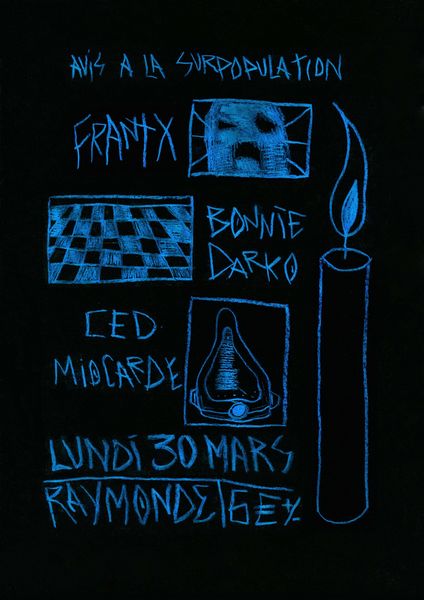 AVIS A LA SURPOPULATION
FRANTX
BONNIE
DARKO
CED
MIOCARDE
LUNDI 30 MARS
RAYMONDE 6E